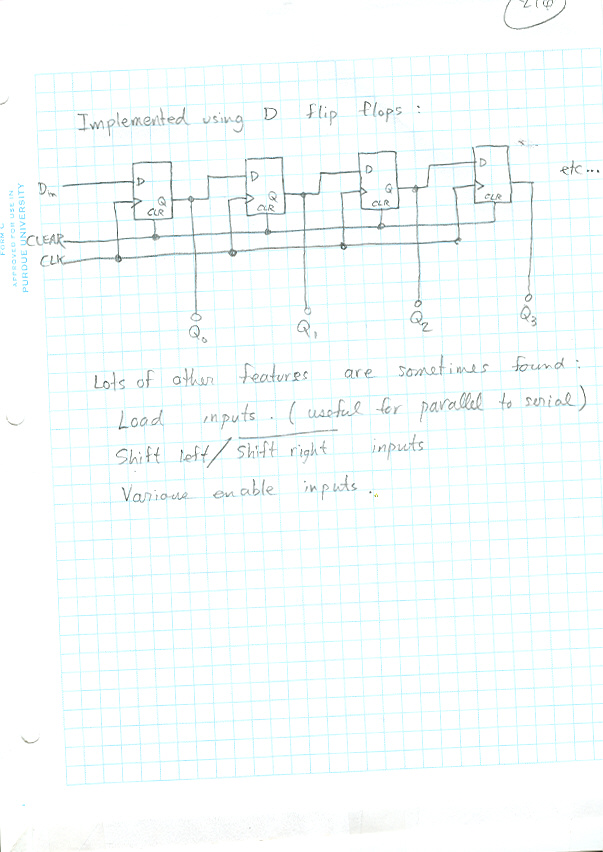 210
Implemented using D flip flops :
D D D D
etc...
Din
Q Q Q
CLR CLR CLR CLR
CLEAR
CLK
Q0 Q1 Q2 Q3
Lots of other features are sometimes found :
Load inputs. (useful for parallel to serial)
Shift left/Shift right inputs
Various enable inputs.
FORM C
APPROVED FOR USE IN
PURDUE UNIVERSITY